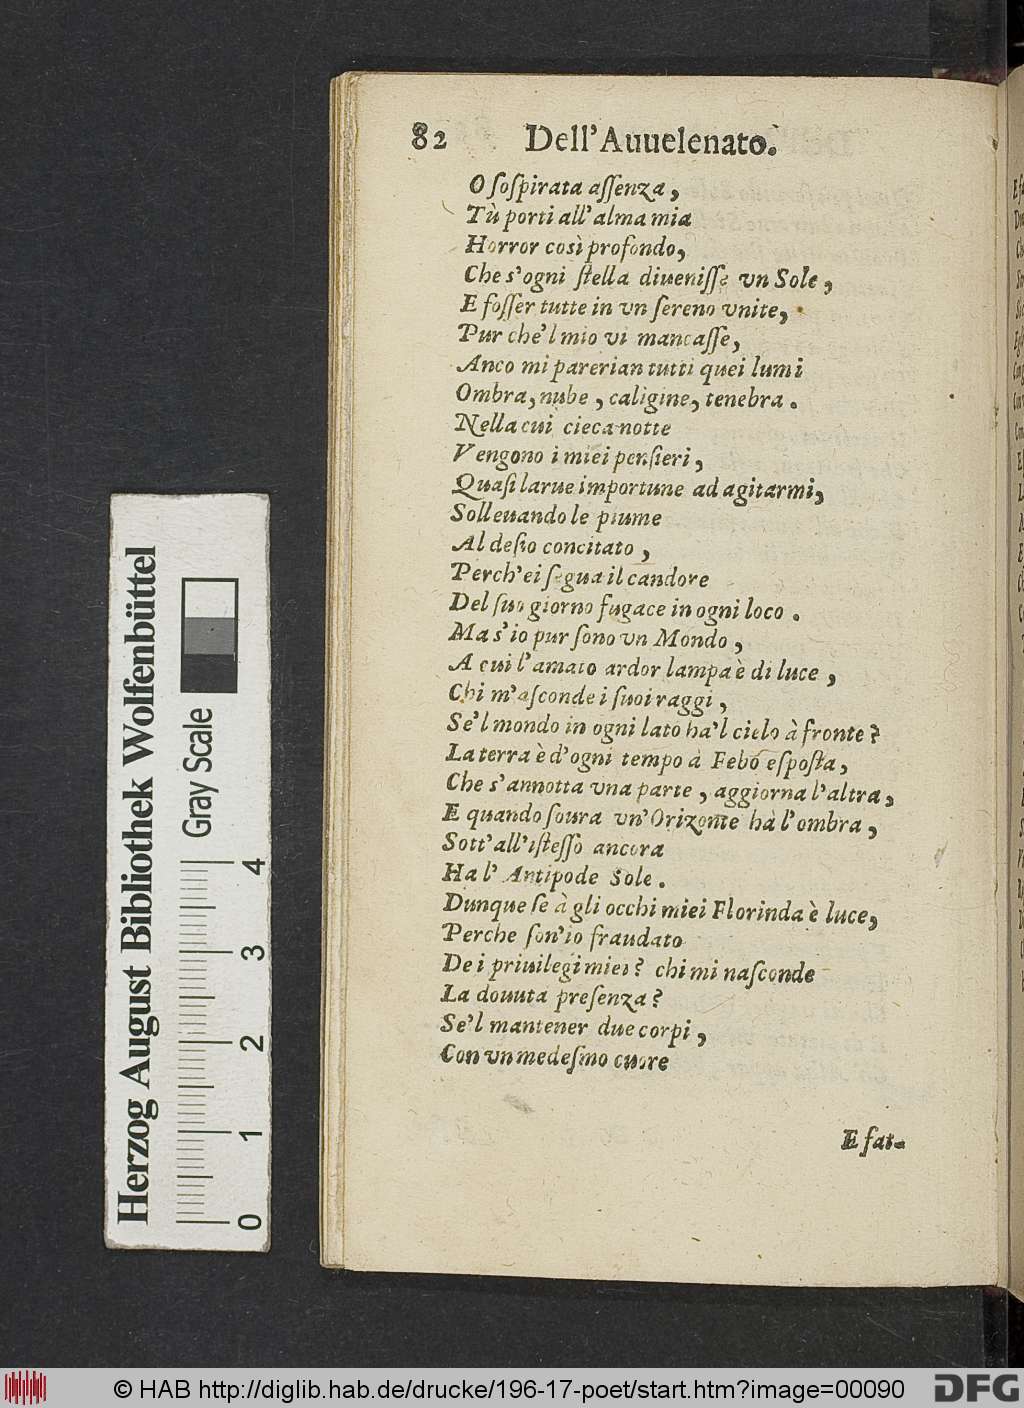 82 Dell'Auuelenato.
O ſoſpirata aſſenza,
Tù porti all'alma mia
Horror così profondo,
Che s'ogni ſtella diueniſſe vn Sole,
E foſſer tutte in vn ſereno vnite,
Pur che'l mio vi mancaſſe,
Anco mi parerian tutti quei lumi
Ombra, nube, caligine, tenebra.
Nella cui cieca notte
Vengono i miei penſieri,
Quaſi larue importune ad agitarmi,
Solleuando le piume
Al deſio concitato,
Perch'ei ſegua il candore
Del ſuo giorno fugace in ogni loco.
Ma s'io pur ſono vn Mondo,
A cui l'amato ardor lampa è di luce,
Chi m'aſconde i ſuoi raggi,
Se'l mondo in ogni lato ha'l cielo à fronte?
La terra è d'ogni tempo à Febo eſpoſta,
Che s'annotta vna parte, aggiorna l'altra,
E quando ſoura vn'Orizonte hà l'ombra,
Sott'all'iſteſſo ancora
Ha l'Antipode Sole.
Dunque ſe à gli occhi miei Florinda è luce,
Perche ſon'io fraudato
De i priuilegi miei? chi mi naſconde
La douuta preſenza?
Se'l mantener due corpi,
Con vn medeſmo cuore
E fat-
Herzog August Bibliothek Wolfenbüttel
Gray Scale
0 1 2 3 4
© HAB http://diglib.hab.de/drucke/196-17-poet/start.htm?image=00090
DFG